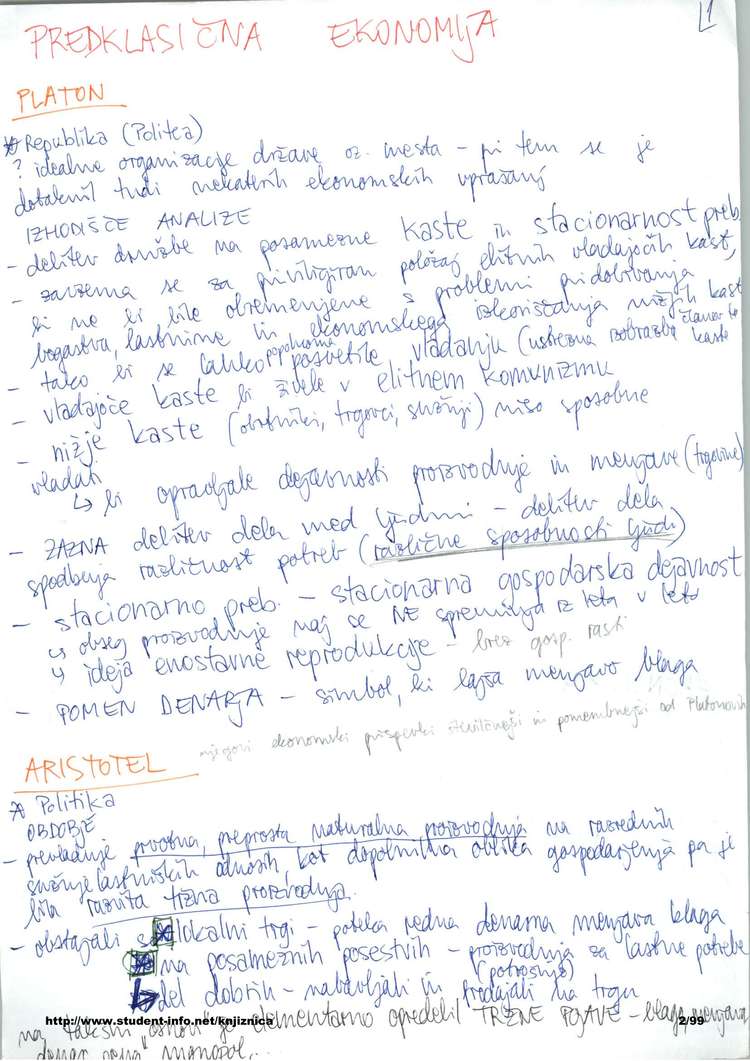 1
PREDKLASIČNA EKONOMIJA
PLATON
* Republika (Politea)
? idealne organizacije države oz. mesta – pri tem se je
dotaknil tudi nekaterih ekonomskih vprašanj
IZHODIŠČE ANALIZE
- delitev družbe na posamezne kaste in stacionarnost preb.
- zavzema se za priviligiran položaj elitnih vladajočih kast,
ki ne bi bile obremenjene s problemi pridobivanja
bogastva, lastnine in ekonomskega izkoriščanja nižjih kast
- tako bi se lahko popolnoma posvetile vladanju (ustrezna izobrazba članov te kaste
- vladajoče kaste bi živele v elitnem komunizmu
- nižje kaste (obrtniki, trgovci, sužnji) niso sposobne
vladati
↳ bi opravljale dejavnosti proizvodnje in menjave (trgovine)
- ZAZNA delitev dela med ljudmi – delitev dela
spodbuja različnost potreb (različne sposobnosti ljudi)
- stacionarno preb. – stacionarna gospodarska dejavnost
↳ obseg proizvodnje naj se NE spreminja iz leta v leto
↳ ideja enostavne reprodukcije – brez gosp. rasti
- POMEN DENARJA – simbol, ki lajša menjavo blaga
njegovi ekonomski prispevki številčnejši in pomembnejši od Platonovih
ARISTOTEL
* Politika
OBDOBJE
- prevladuje prvobna, preprosta naturalna proizvodnja na razrednih
sužnje lastniških odnosih, kot dopolnilna oblika gospodarjenja pa je
bila razvita tržna proizvodnja.
- obstajali so * lokalni trgi – poteka redna denarna menjava blaga
* na posameznih posestvih – proizvodnja za lastne potrebe
(potrošnjo)
del dobrin – nabavljali in prodajali na trgu
http://www.student-info.net/knjiznica
na takšni osnovi je elementarno opredelil TRŽNE POJAVE – blago, menjava
2/99
denar, cena, monopol...